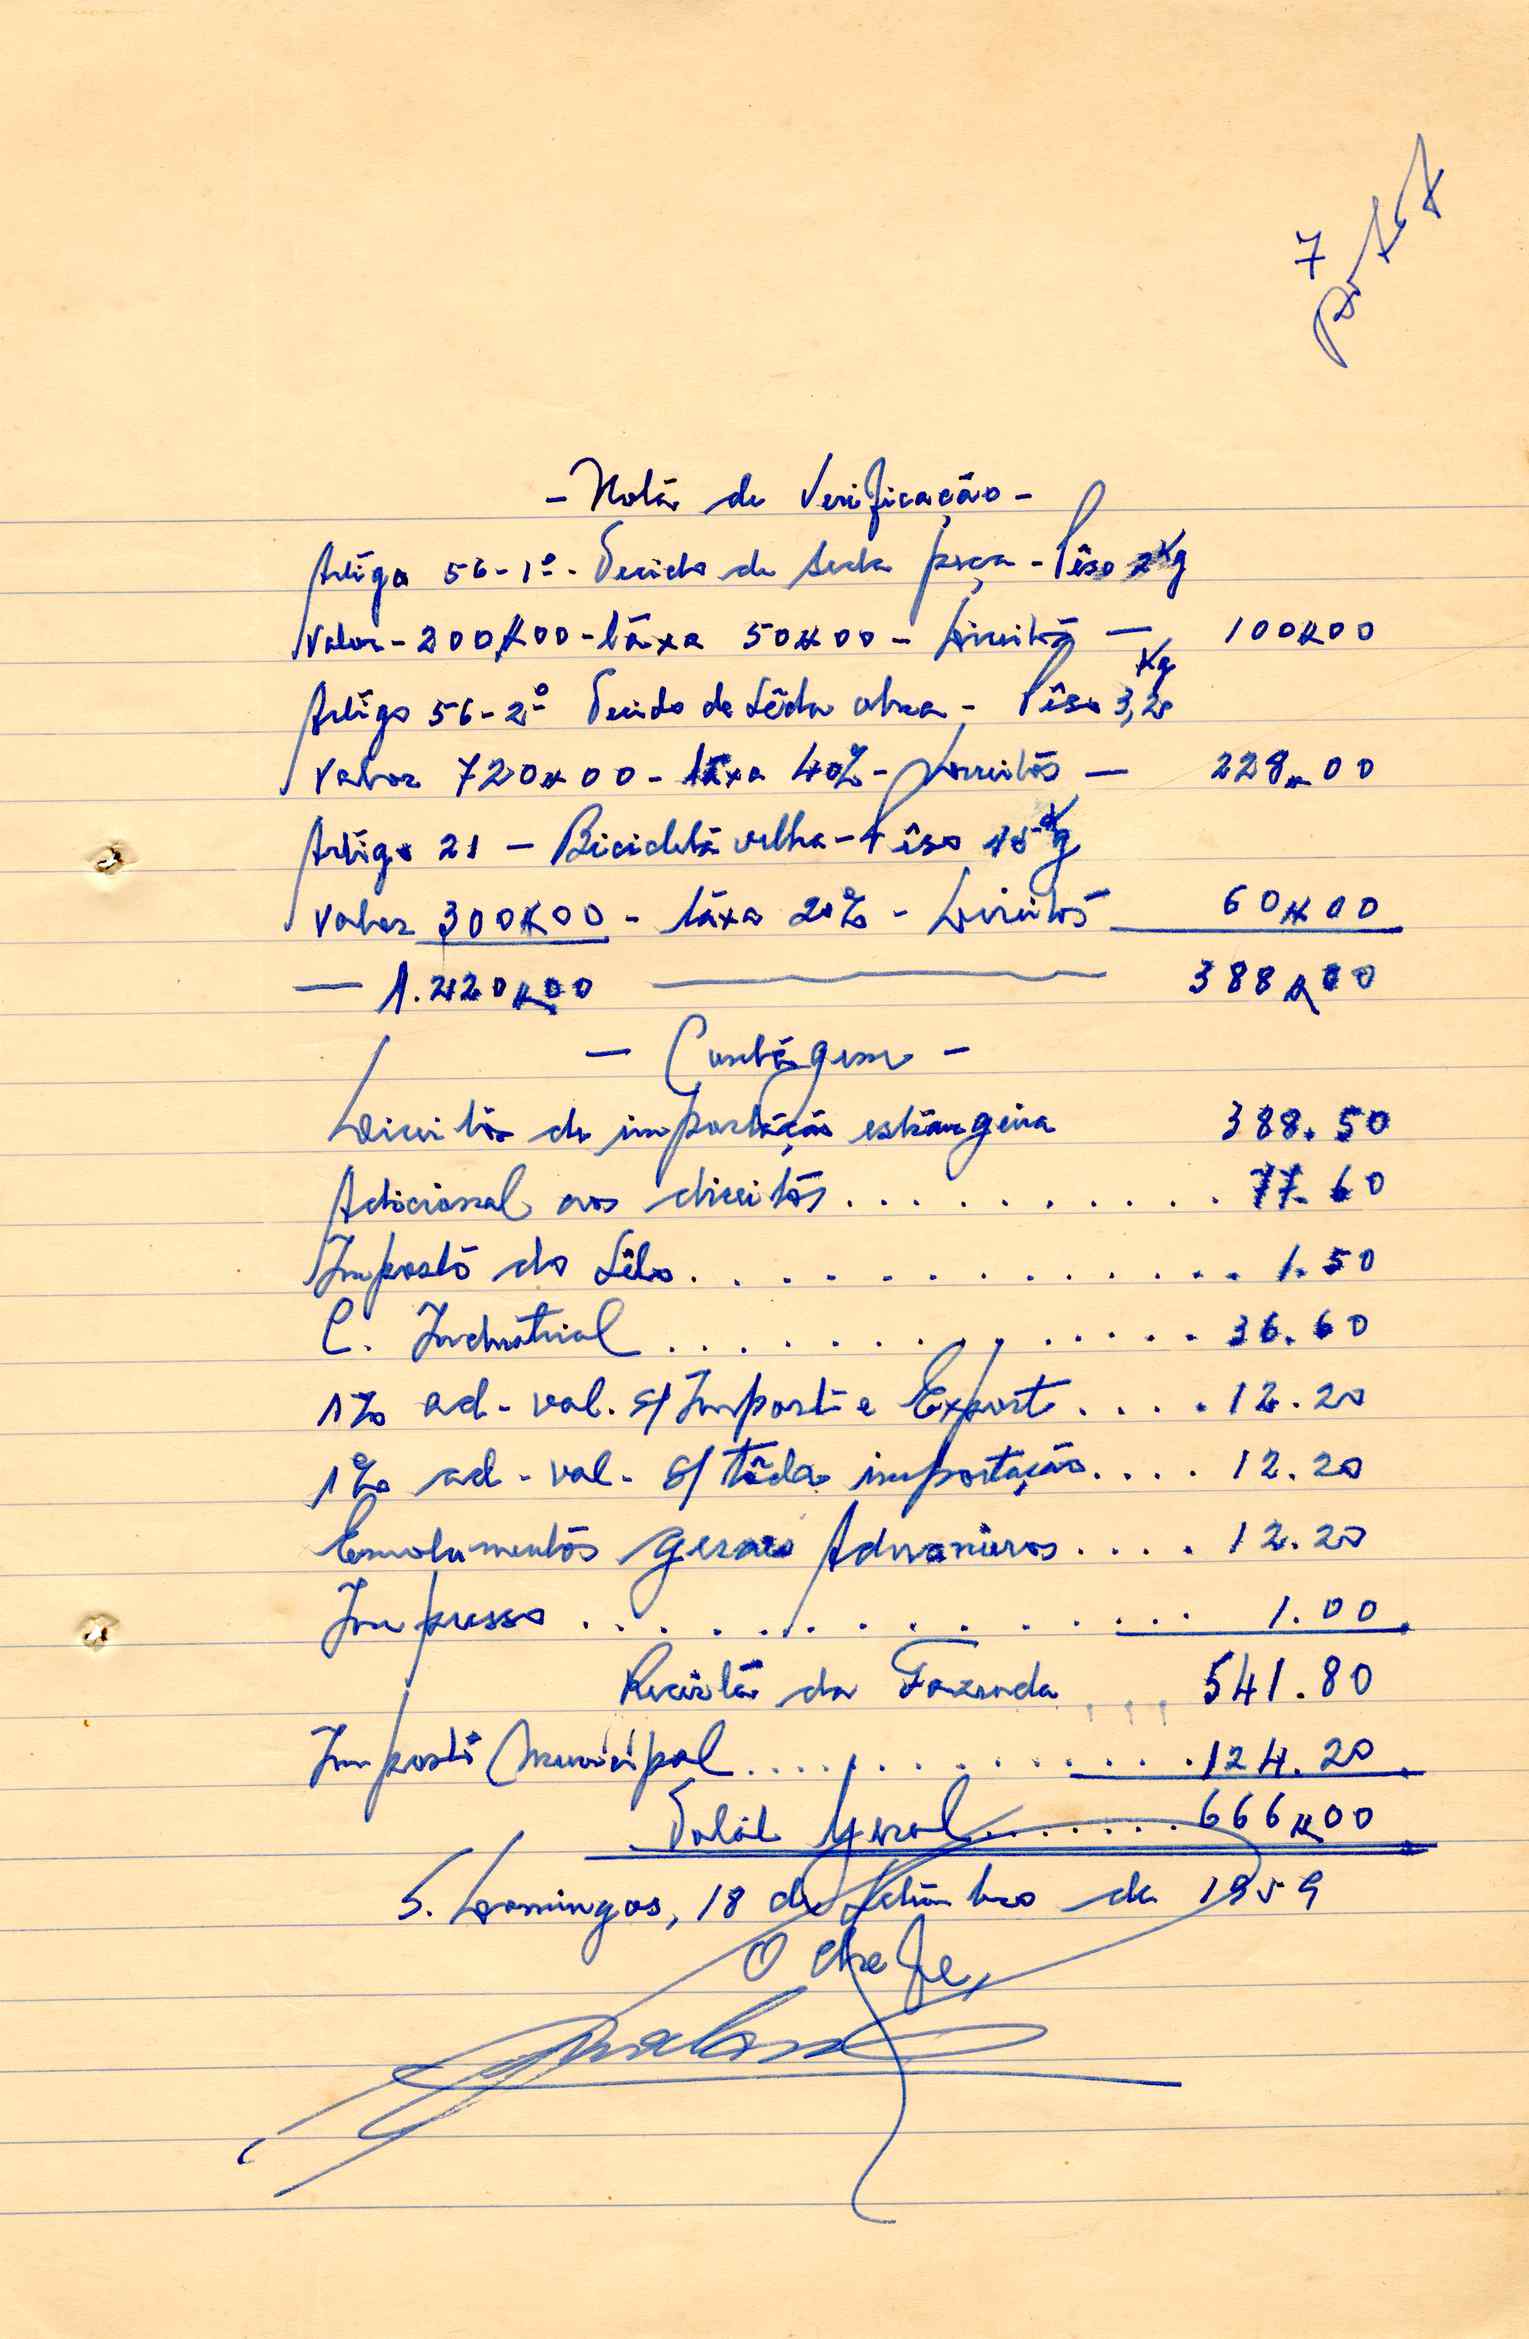 7
- Nota de Verificação -
Artigo 56-1º- Tecido de seda pura - Pêso 2Kg
Valor - 200$00 - táxa 50$00 - Direitos — 100$00
Artigo 56-2º Tecido de Sêda obra - Pêso 3,2 Kg
Valor 720$00 - táxa 40% - Direitos — 228$00
Artigo 21 — Bicicleta velha - Pêso 15Kg
Valor 300$00 - táxa 20% - Direitos 60$00
— 1.220$00 — 388$00
— Contágem —
Direitos de importação estrangeira 388.50
Adicional aos direitos . . . . . . . . . . . 77.60
Imposto do Sêlo . . . . . . . . . . . . . . 1.50
C. Industrial . . . . . . . . . . . . . . 36.60
1% ad-val. s/ Import e Export . . . . 12.20
1% ad-val. s/ tôda importação . . . . 12.20
Emolumentos gerais Aduaneiros . . . . 12.20
Impresso . . . . . . . . . . . . . 1.00
Receita da Fazenda . . . 541.80
Imposto Municipal . . . . . . . . . . . 124.20
Total Geral . . . . . . . 666$00
S. Domingos, 18 de Setembro de 1959
O Chefe,